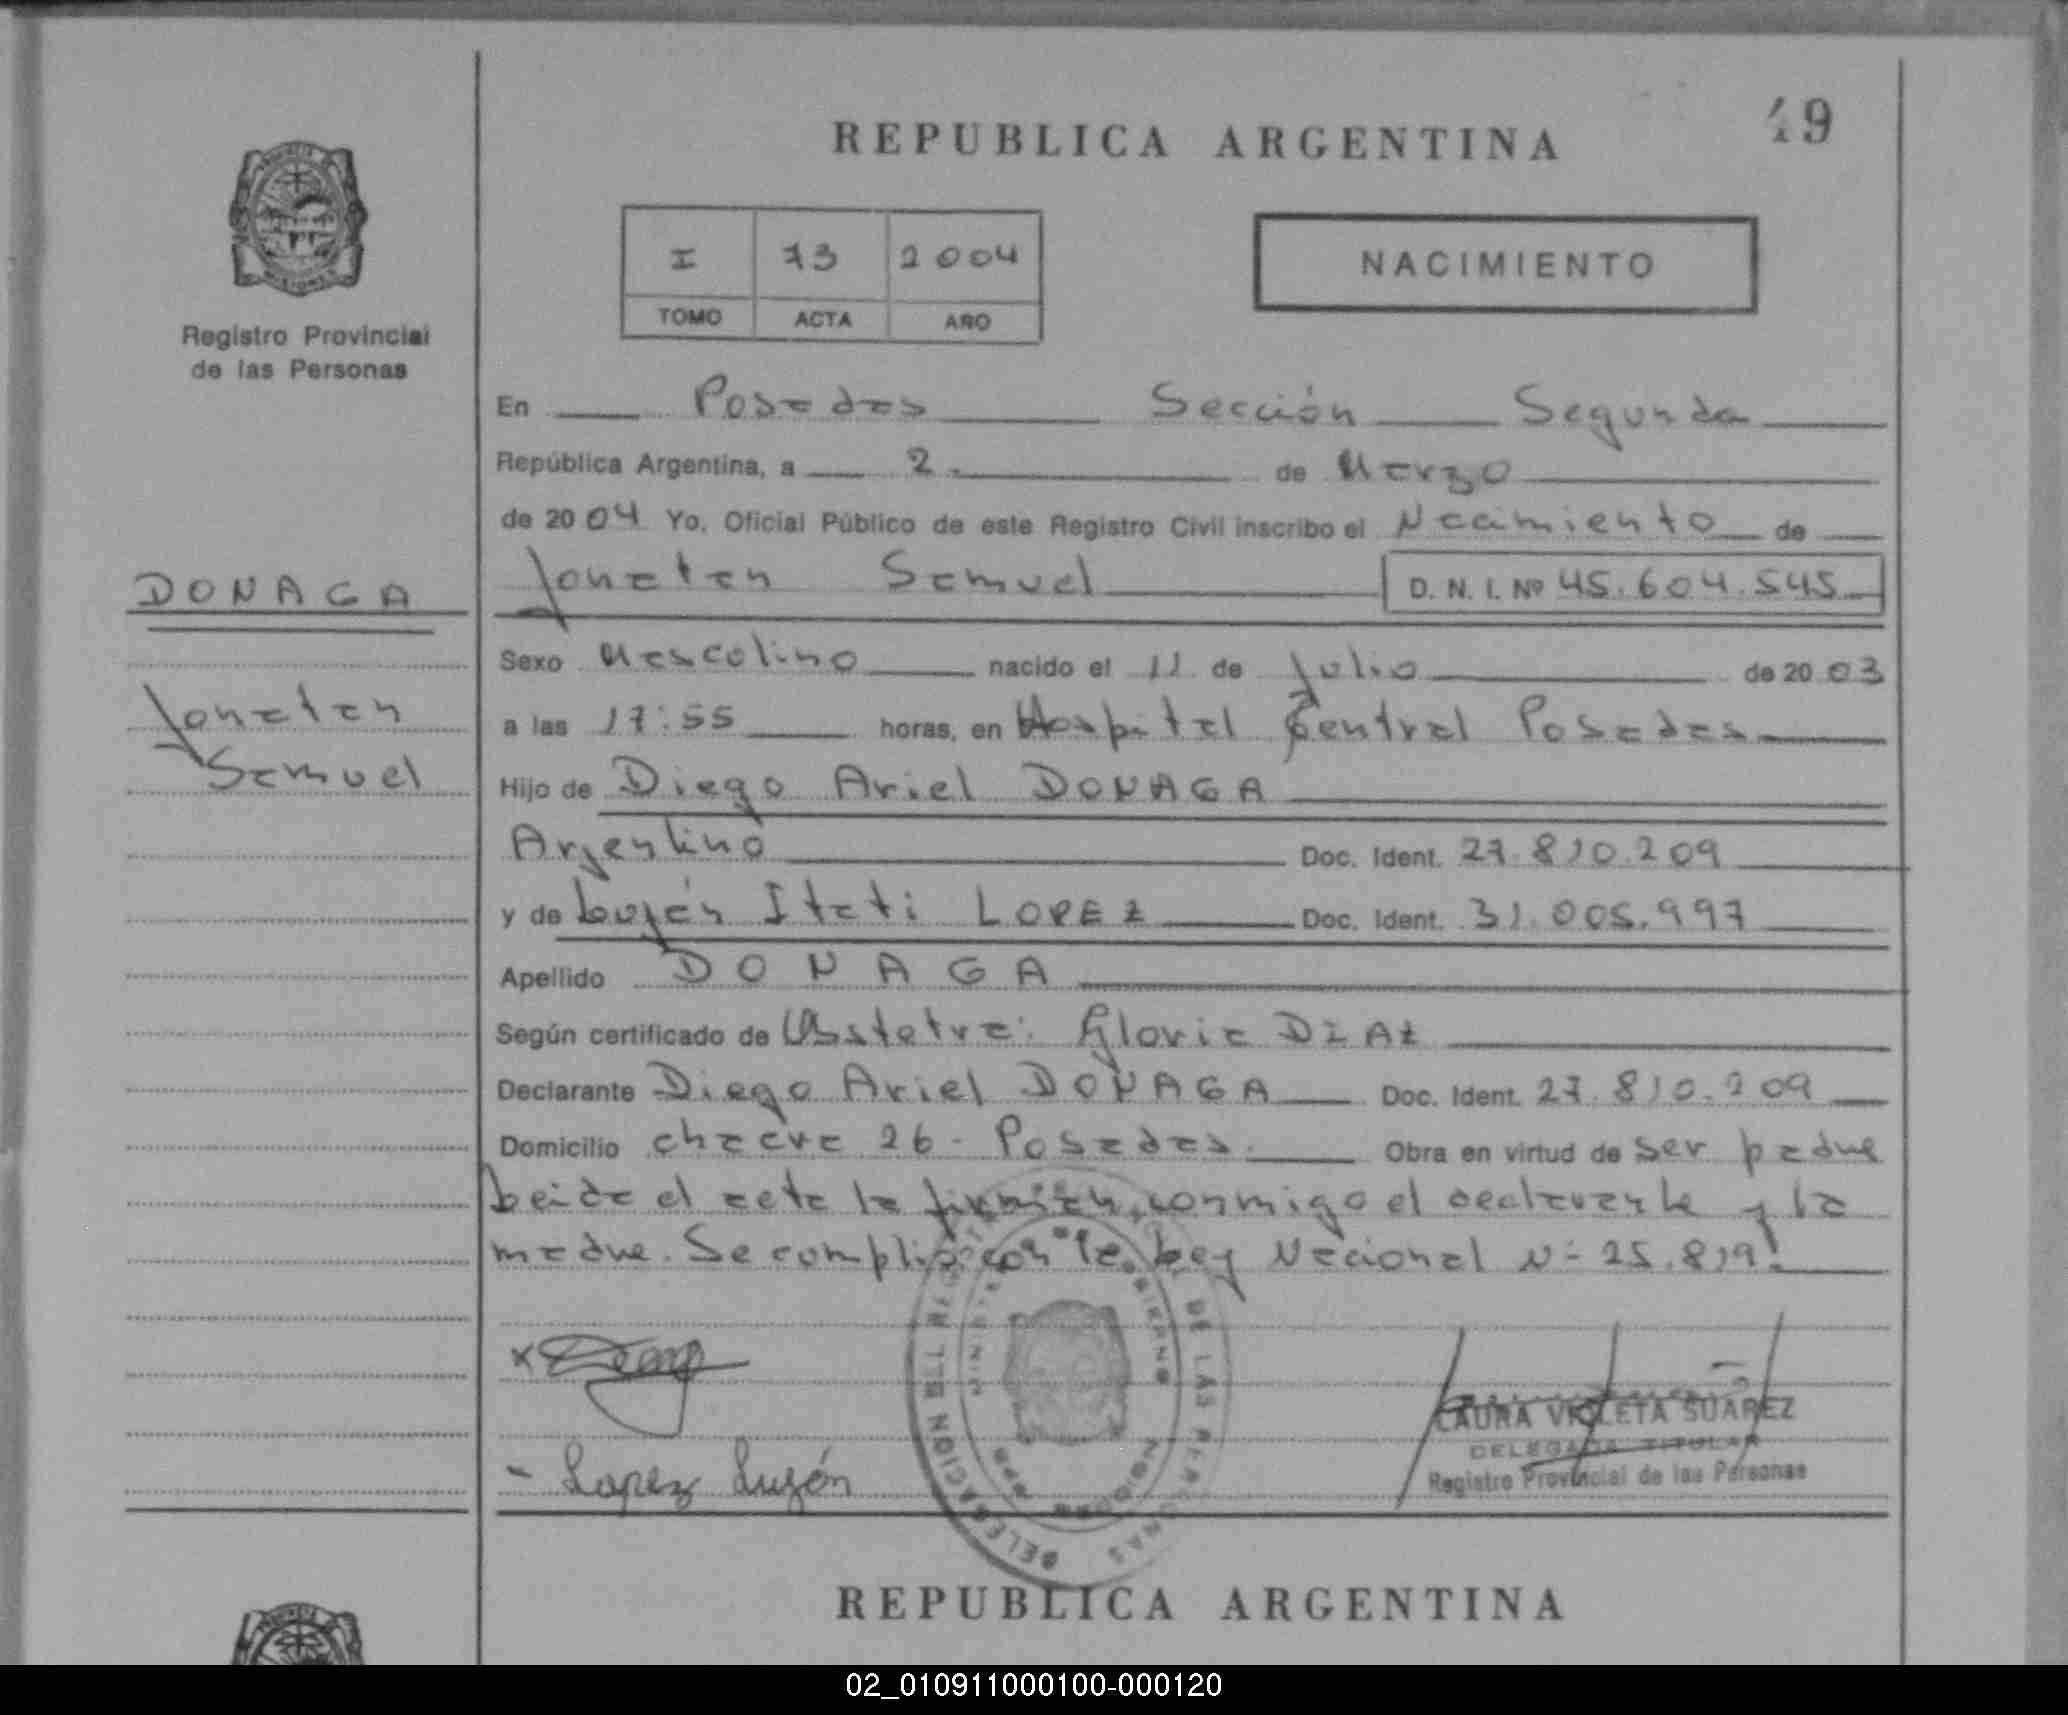 49
REPUBLICA ARGENTINA
I 73 2004
TOMO ACTA AÑO
NACIMIENTO
Registro Provincial
de las Personas
En Posadas Sección Segunda
República Argentina, a 2 de Marzo
de 2004 Yo, Oficial Público de este Registro Civil inscribo el Nacimiento de
DONAGA
Jonatan Samuel D. N. I. Nº 45.604.545
Sexo Masculino nacido el 11 de Julio de 2003
Jonatan
Samuel
a las 17:55 horas, en Hospital Central Posadas
Hijo de Diego Ariel DONAGA
Argentino Doc. Ident. 27.810.209
y de Luján Itatí LOPEZ Doc. Ident. 31.005.997
Apellido DONAGA
Según certificado de Obstetra: Gloria DIAZ
Declarante Diego Ariel DONAGA Doc. Ident. 27.810.209
Domicilio 26 - Posadas. Obra en virtud de ser padre
Leida el acta la firman conmigo el declarante y la
madre. Se cumplió con la Ley Nacional Nº 25.819.
DELEGACION DE LAS PERSONAS
LAURA VIOLETA SUAREZ
DELEGADA TITULAR
Registro Provincial de las Personas
- Lopez Luján
REPUBLICA ARGENTINA
02_010911000100-000120